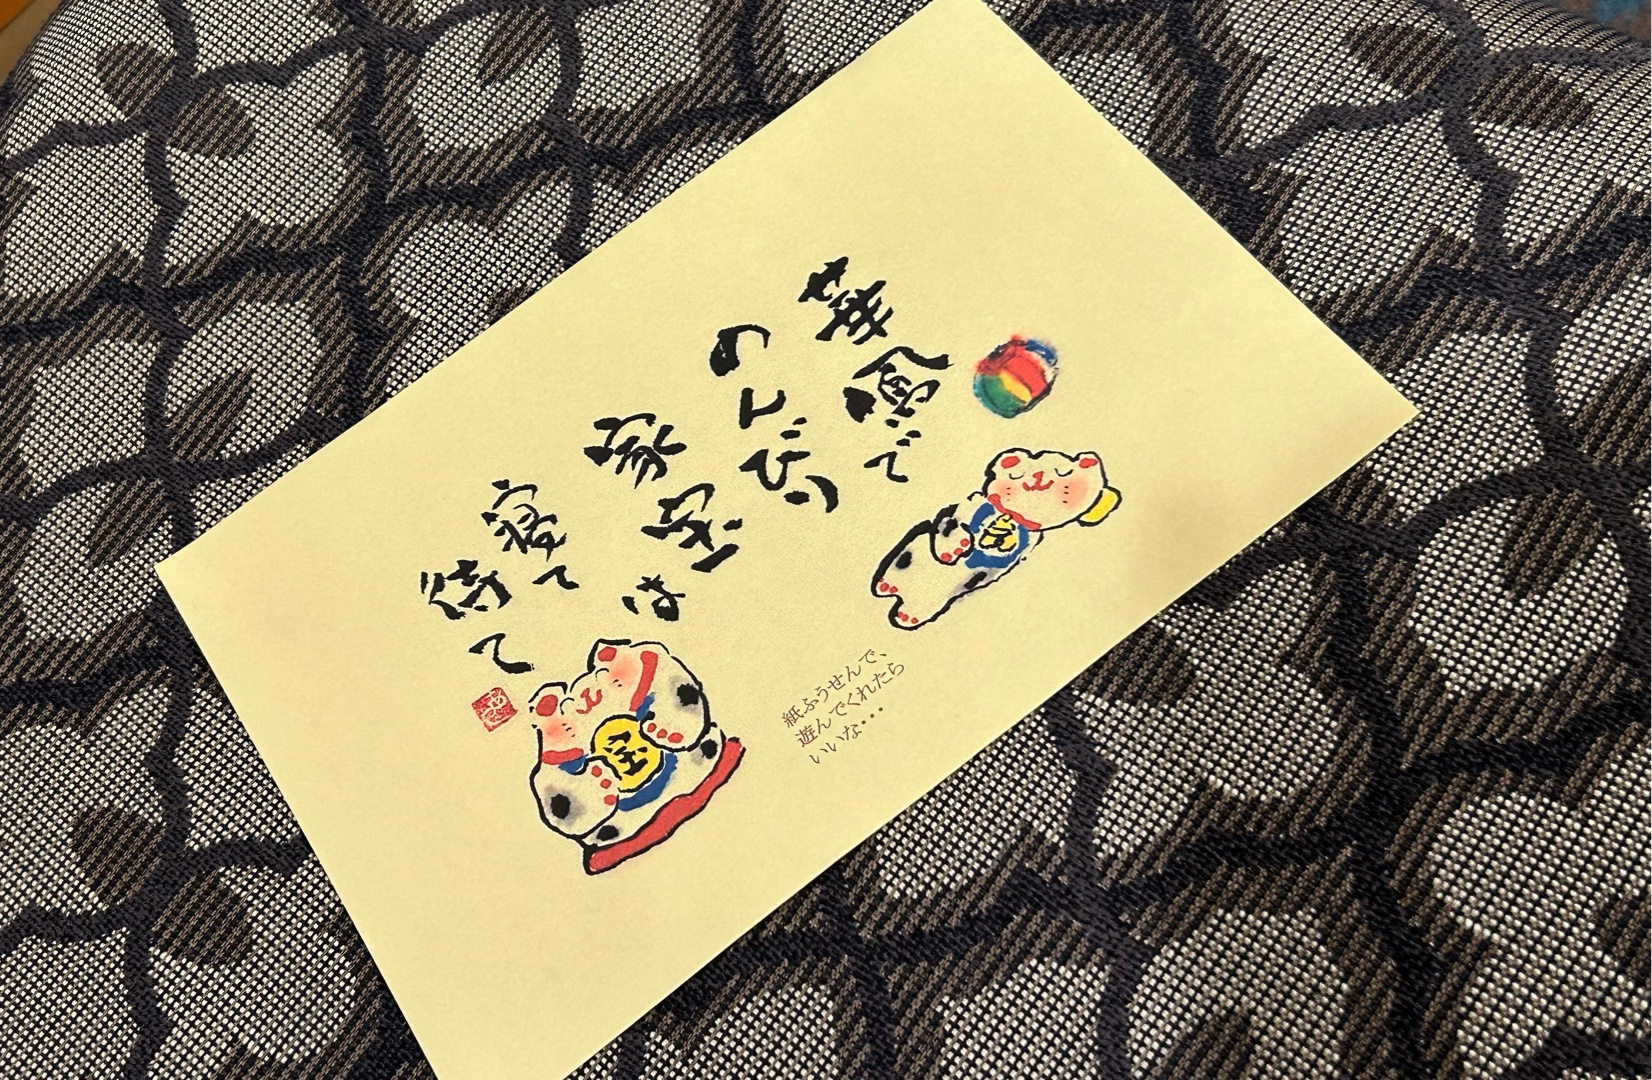 華鳳で
のんびり
家宝は
寝て
待て
紙ふうせんで、
遊んでくれたら
いいな・・・
宝